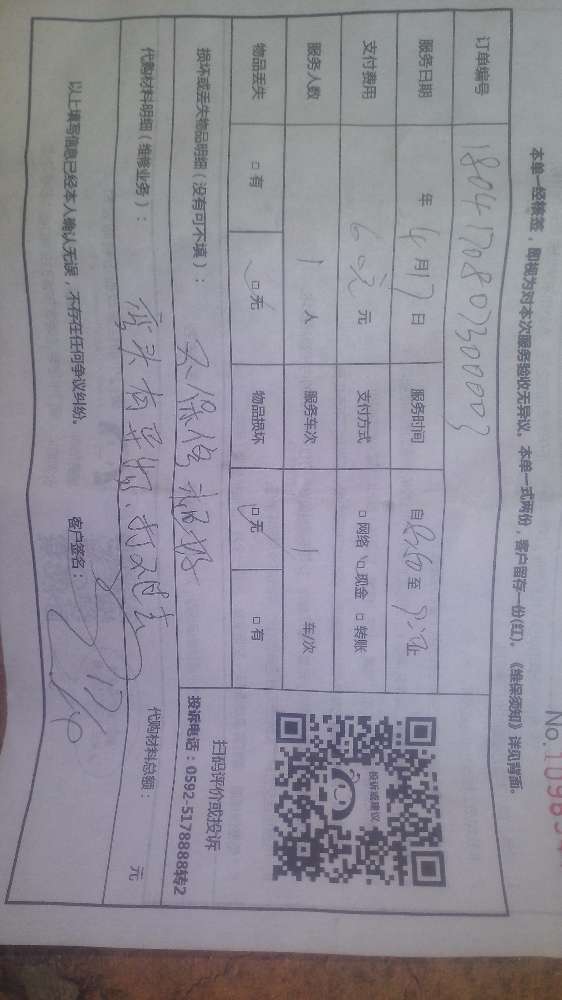 No.10985
本单一经核签，即视为对本次服务验收无异议。本单一式两份，客户留存一份(红)。《维保须知》详见背面。
订单编号 18041708073000003
服务日期 年 4月17日 服务时间 自 至 止
支付费用 60元 元 支付方式 □网络 □现金 □转账
服务人数 1 人 服务车次 1 车/次
物品丢失 □有 □无 物品损坏 □无 □有
投诉或建议
扫码评价或投诉
投诉电话：0592-5178888转2
损坏或丢失物品明细（没有可不填）：
不保修
代购材料明细（维修业务）：
弯头有异物，
代购材料总额： 元
以上填写信息已经本人确认无误，不存在任何争议纠纷。 客户签名：